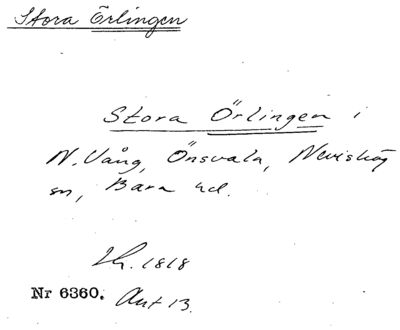 Stora Örlingen
Stora Örlingen i
N. Vång, Önsvala, Nevishög
sn, Bara hd.
Lh. 1818
Nr 6360. Avt 13.